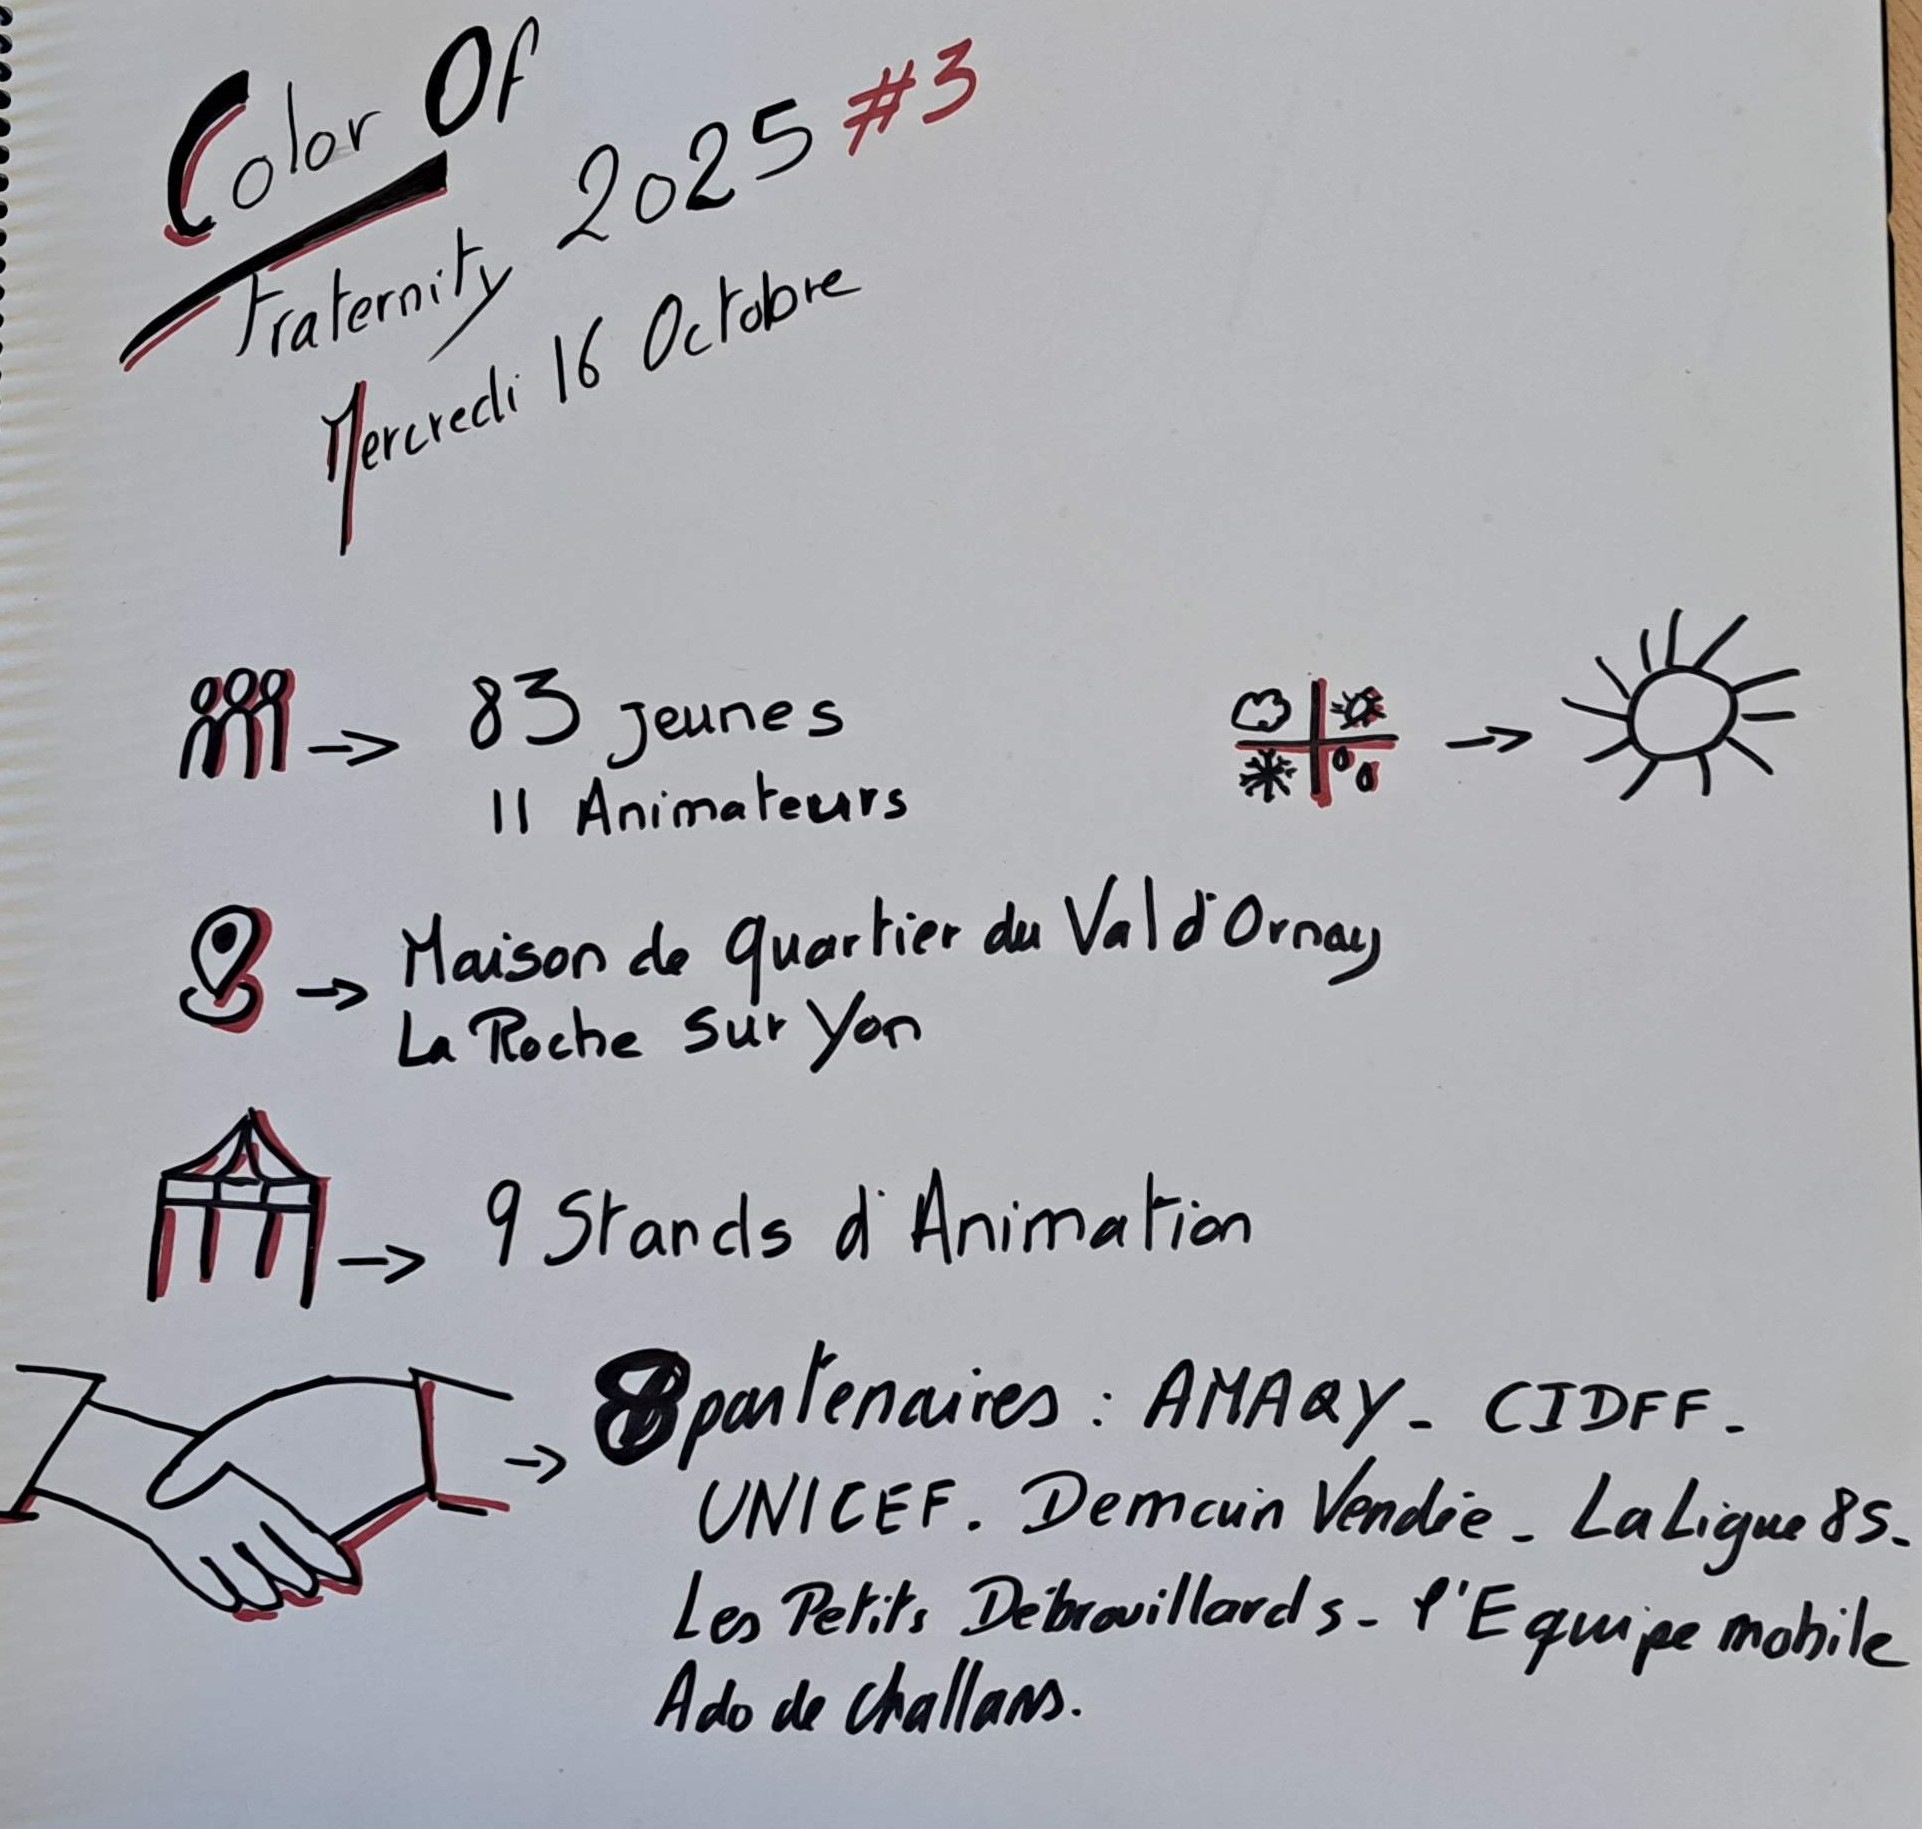 Color Of
Fraternity 2025 #3
Mercredi 16 Octobre
83 jeunes
11 Animateurs
Maison de quartier du Val d'Ornay
La Roche sur Yon
9 Stands d'Animation
8 partenaires : AMAQY - CIDFF -
UNICEF. Demain Vendée - La Ligue 85 -
Les Petits Débrouillards - l'Equipe mobile
Ado de Challans.